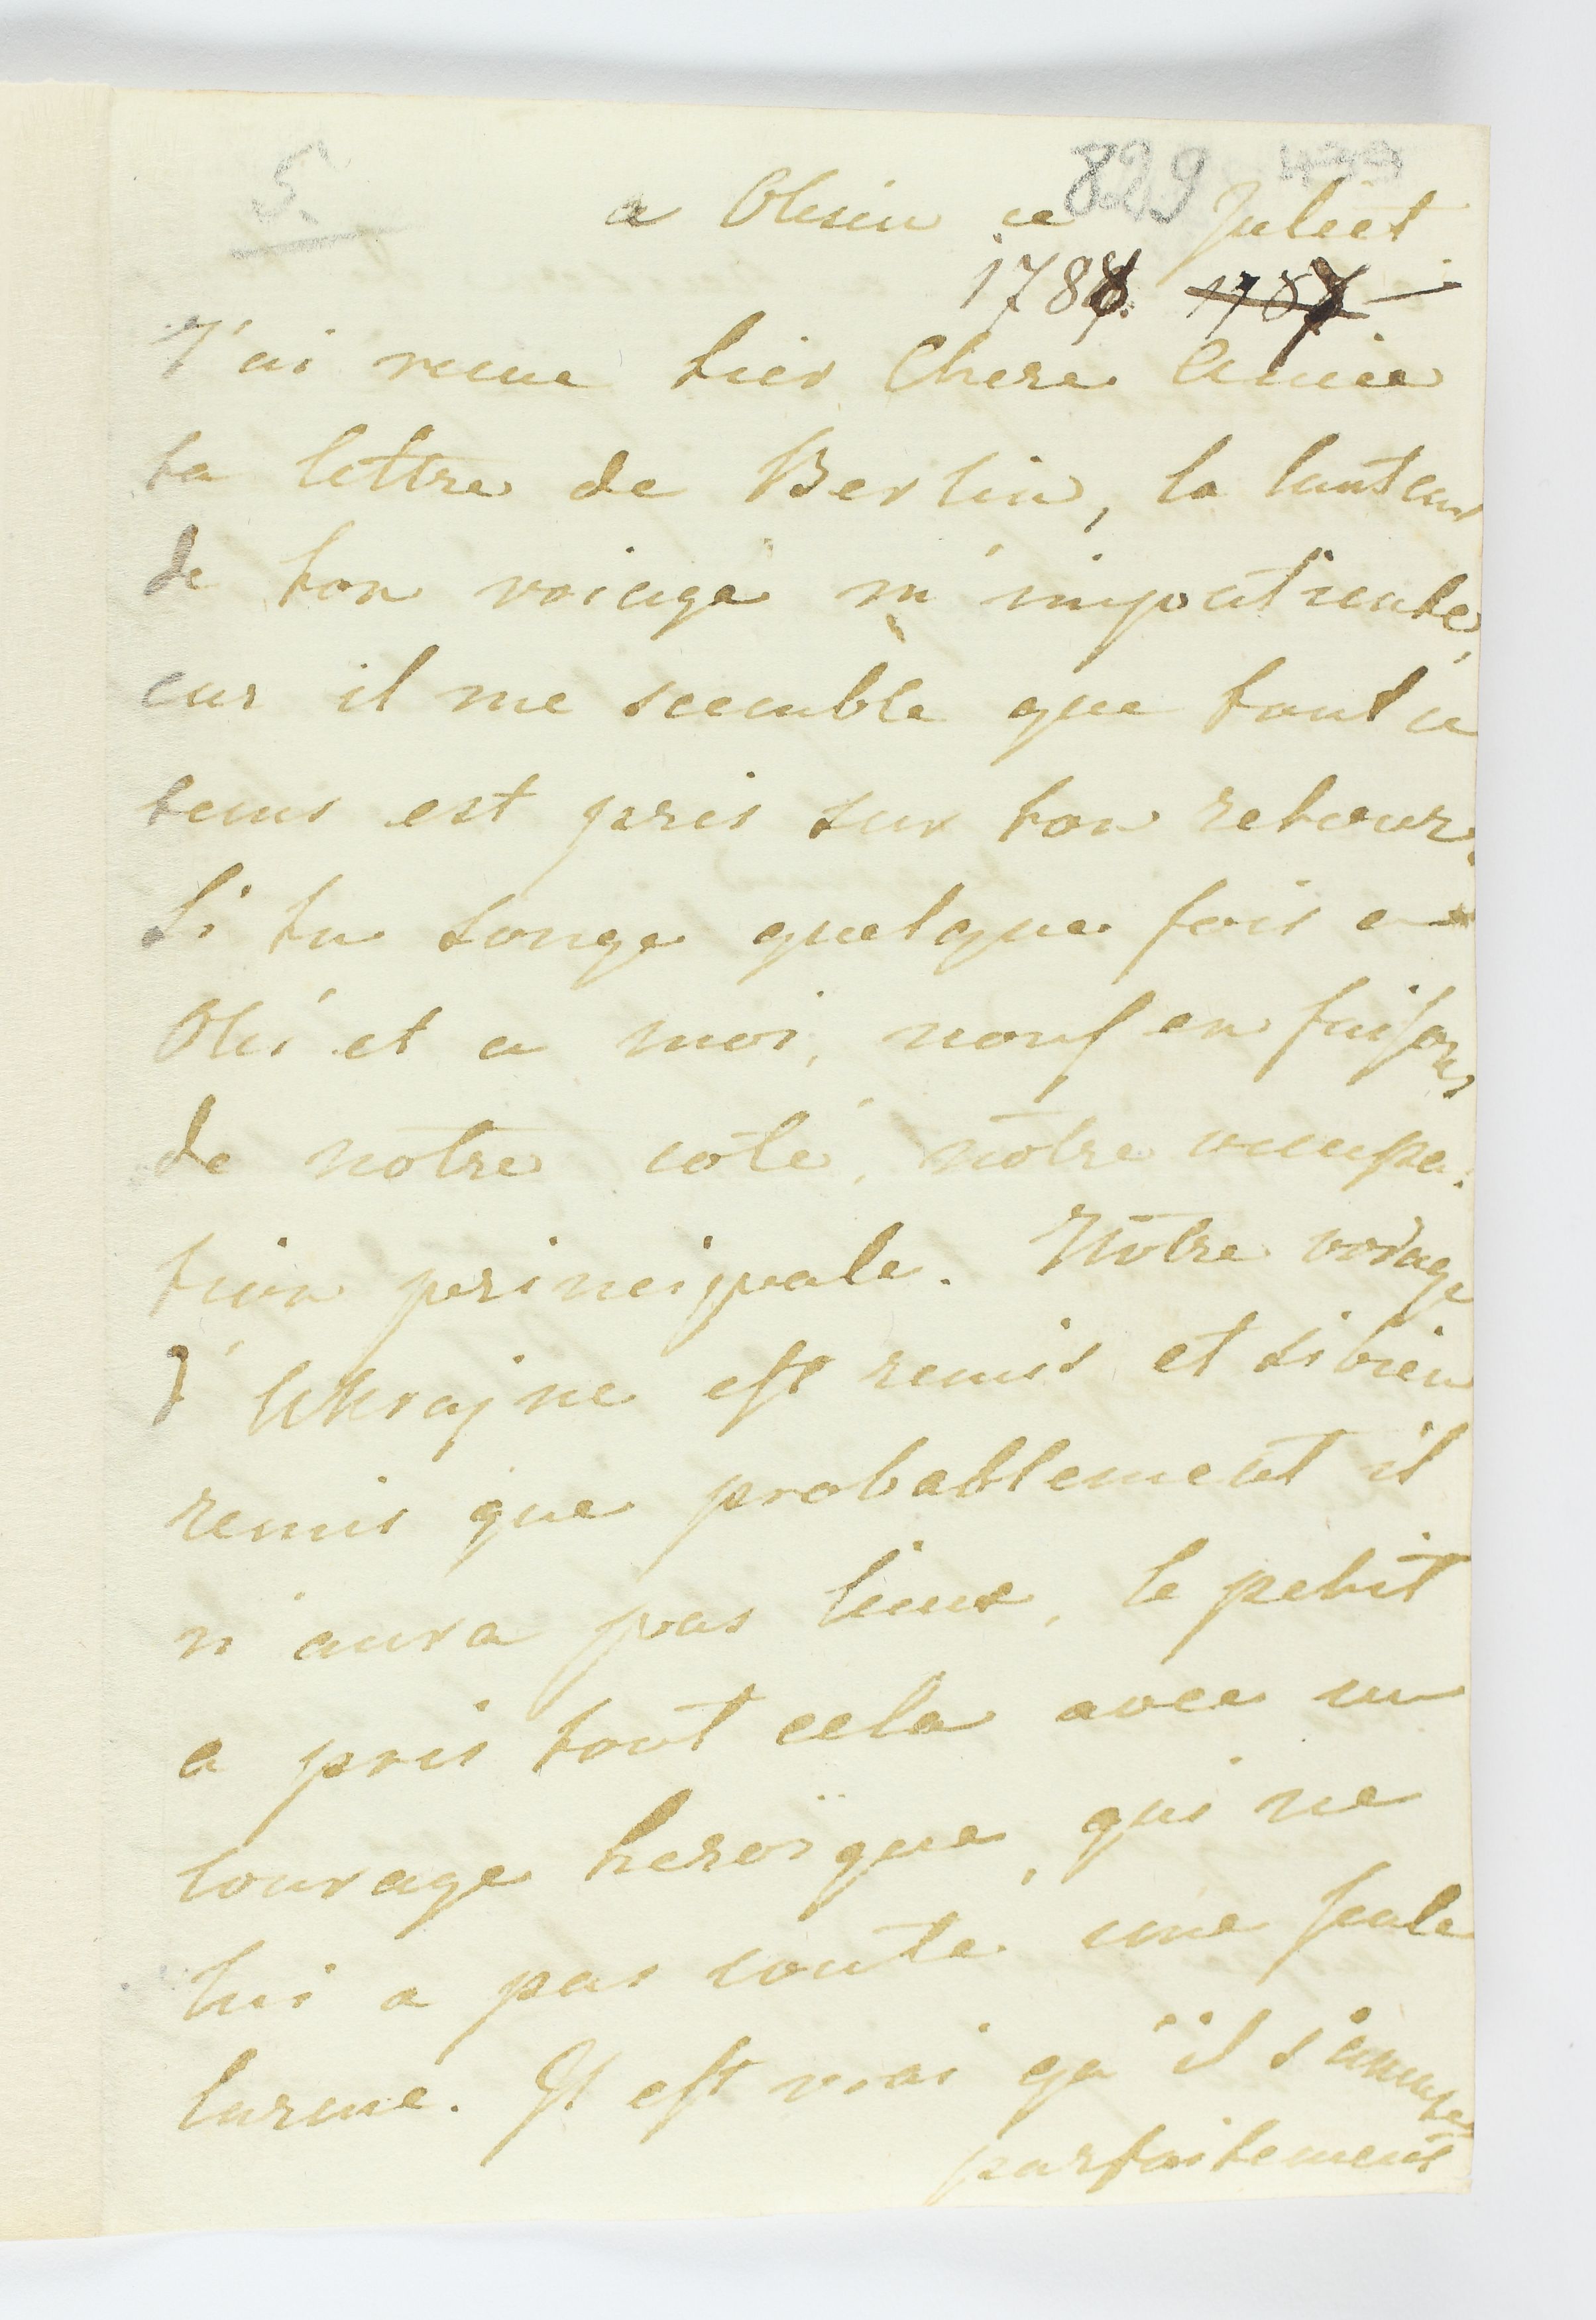 5.
829
a Olesin ce Juliet
1788. 1787
J'ai recue hier Chere Amie
ta lettre de Berlin, la lanteur
de ton voiage m'impatiente,
car il me seemble que tout ce
tems est pris sur ton retour.
Si tu songe quelque fois a
Olés et a moi, nous en faisons
de notre coté, nôtre occupa:
tion principale. Nôtre voiage
d'Ukrajne est remis et si bien
remis que probablement il
n'aura pas lieux, le petit
a pris tout cela avec un
courage heroïque, qui ne
lui a pas couté une seule
larme. Il est vrai qu'il s'amuse
parfaitement